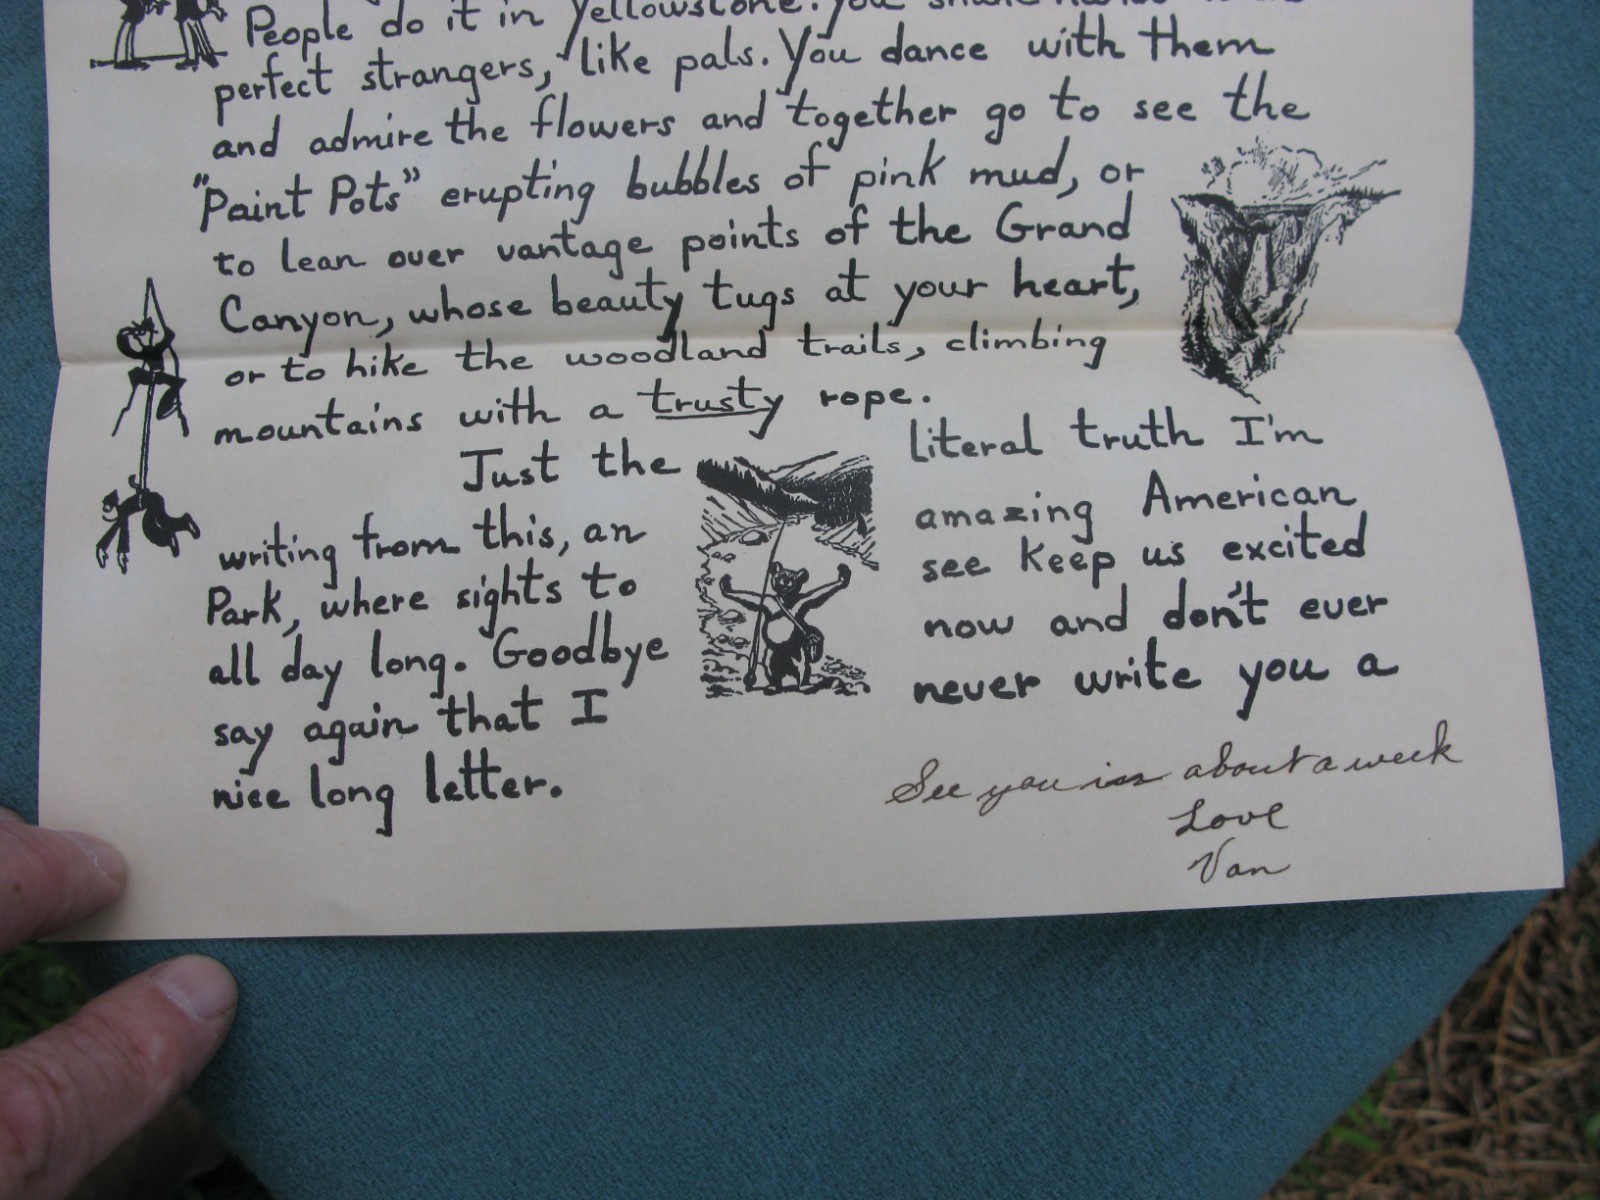 People do it in Yellowstone. You shake hands
perfect strangers, like pals. You dance with them
and admire the flowers and together go to see the
"Paint Pots" erupting bubbles of pink mud, or
to lean over vantage points of the Grand
Canyon, whose beauty tugs at your heart,
or to hike the woodland trails, climbing
mountains with a trusty rope.
Just the literal truth I'm
writing from this, an amazing American
Park, where sights to see keep us excited
all day long. Goodbye now and don't ever
say again that I never write you a
nice long letter.
See you in about a week
Love
Van